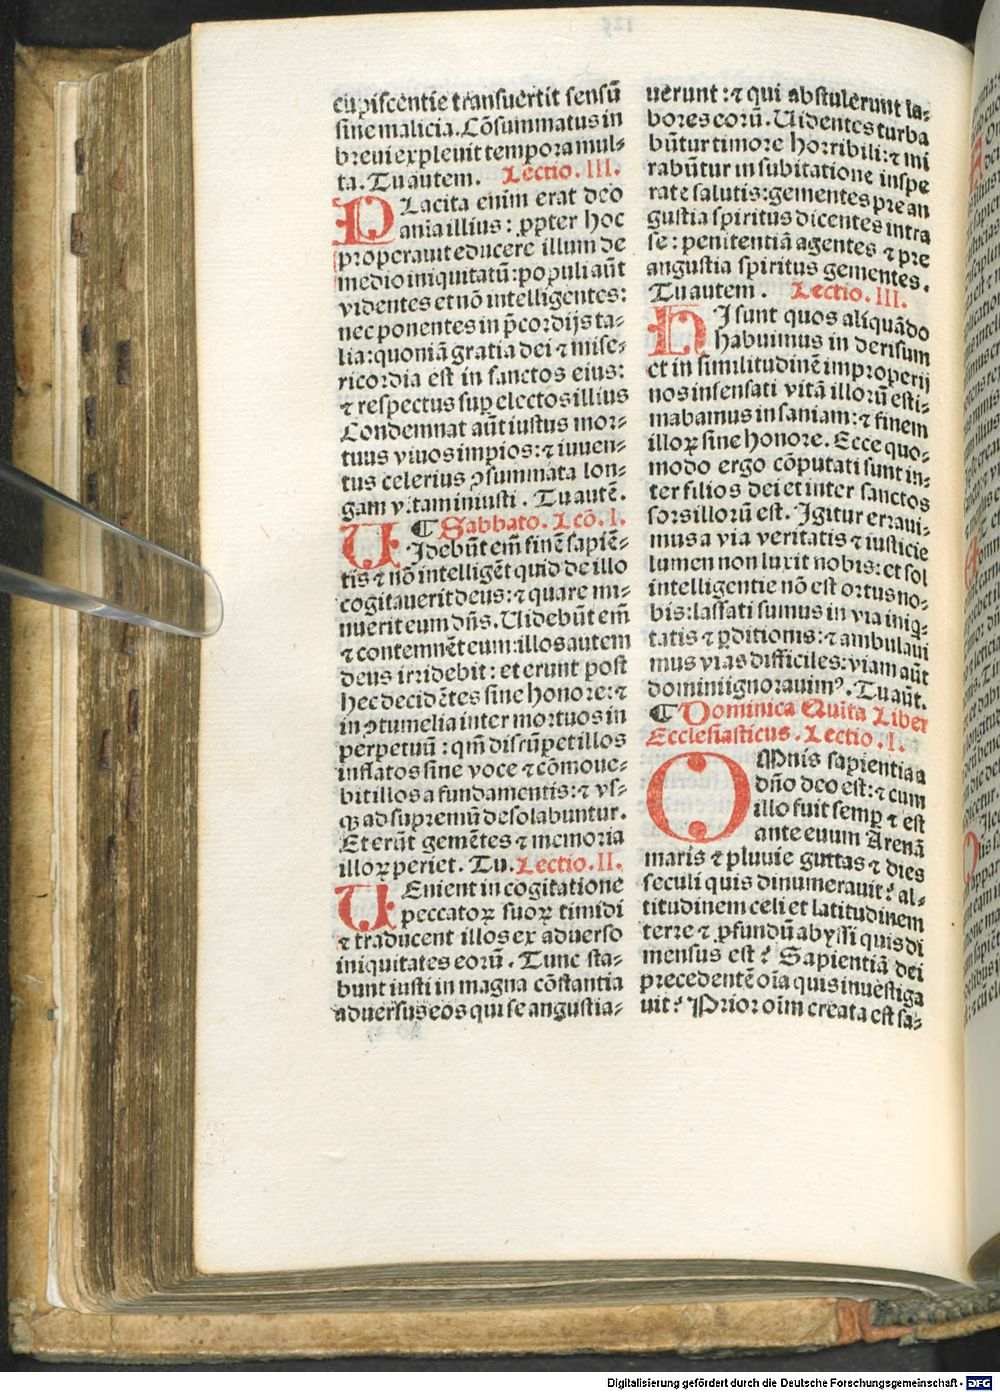 cupiscentie transuertit sensũ
sine malicia. Cõsummatus in
breui expleuit tempora mul⸗
ta. Tu autem. Lectio. III.
PLacita enim erat deo
ania illius: ꝓpter hoc
properauit educere illum de
medio iniquitatũ: populi aũt
videntes et nõ intelligentes:
nec ponentes in p̃cordijs ta⸗
lia: quoniã gratia dei ⁊ mise⸗
ricordia est in sanctos eius:
⁊ respectus suꝑ electos illius
Condemnat aũt iustus mor⸗
tuus viuos impios: ⁊ iuuen⸗
tus celerius ꝯsummata lon⸗
gam vitam iniusti. Tu autẽ.
¶ Sabbato. Leõ. I.
UIdebũt em̃ finẽ sapiẽ⸗
tis ⁊ nõ intelligẽt quid de illo
cogitauerit deus: ⁊ quare mi⸗
nuerit eum dñs. Uidebũt em̃
⁊ contemnẽt eum: illos autem
deus irridebit: et erunt post
hec decidẽtes sine honore: ⁊
in ꝯtumelia inter mortuos in
perpetuũ: qm̃ disrũpet illos
inflatos sine voce ⁊ cõmoue⸗
bit illos a fundamentis: ⁊ vs⸗
ꝙ ad supremũ desolabuntur.
Et erũt gemẽtes ⁊ memoria
illoꝝ periet. Tu. Lectio. II.
UEnient in cogitatione
peccatoꝝ suoꝝ timidi
⁊ traducent illos ex aduerso
iniquitates eorũ. Tunc sta⸗
bunt iusti in magna cõstantia
aduersus eos qui se angustia⸗
uerunt: ⁊ qui abstulerunt la⸗
bores eorũ. Uidentes turba
bũtur timore horribili: ⁊ mi
rabũtur in subitatione inspe
rate salutis: gementes pre an
gustia spiritus dicentes intra
se: penitentiã agentes ⁊ pre
angustia spiritus gementes.
Tu autem. Lectio. III.
HI sunt quos aliquãdo
habuimus in derisum
et in similitudinẽ improperij
nos insensati vitã illorũ esti⸗
mabamus insaniam: ⁊ finem
illoꝝ sine honore. Ecce quo⸗
modo ergo cõputati sunt in⸗
ter filios dei et inter sanctos
sors illorũ est. Igitur erraui⸗
mus a via veritatis ⁊ iusticie
lumen non luxit nobis: et sol
intelligentie nõ est ortus no⸗
bis: lassati sumus in via iniq̃⸗
tatis ⁊ ꝑditionis: ⁊ ambulaui
mus vias difficiles: viam aũt
domini ignorauimꝰ. Tu aũt.
¶ Dominica Quĩta Liber
Ecclesiasticus. Lectio. I.
OMnis sapientia a
dño deo est: ⁊ cum
illo fuit semꝑ ⁊ est
ante euum Arenã
maris ⁊ pluuie guttas ⁊ dies
seculi quis dinumerauit? al⸗
titudinem celi et latitudinem
terre ⁊ ꝓfundũ abyssi quis di
mensus est? Sapientiã dei
precedentẽ oĩa quis inuestiga
uit? Prior oĩm creata est sa⸗
Digitalisierung gefördert durch die Deutsche Forschungsgemeinschaft - DFG